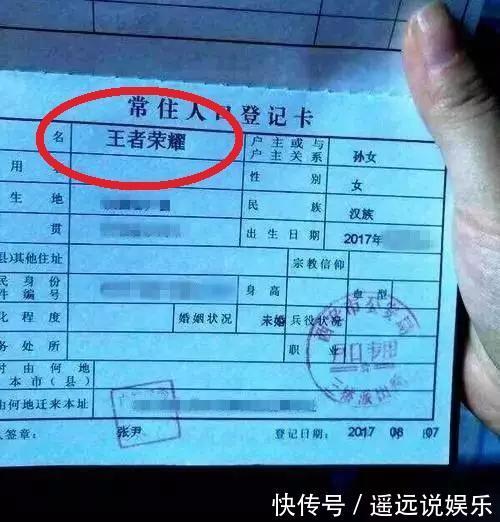 常住人口登记卡
名 王者荣耀 户主或与户主关系 孙女
用 性别 女
生地 民族 汉族
贯 出生日期 2017年
县)其他住址 宗教信仰
民身份件编号 身高 血型
化程度 婚姻状况 未婚 兵役状况
务处所 职业
时由何地本市(县)
由何地迁来本址
人签章: 张尹 登记日期: 2017 08 07
快传号/遥远说娱乐